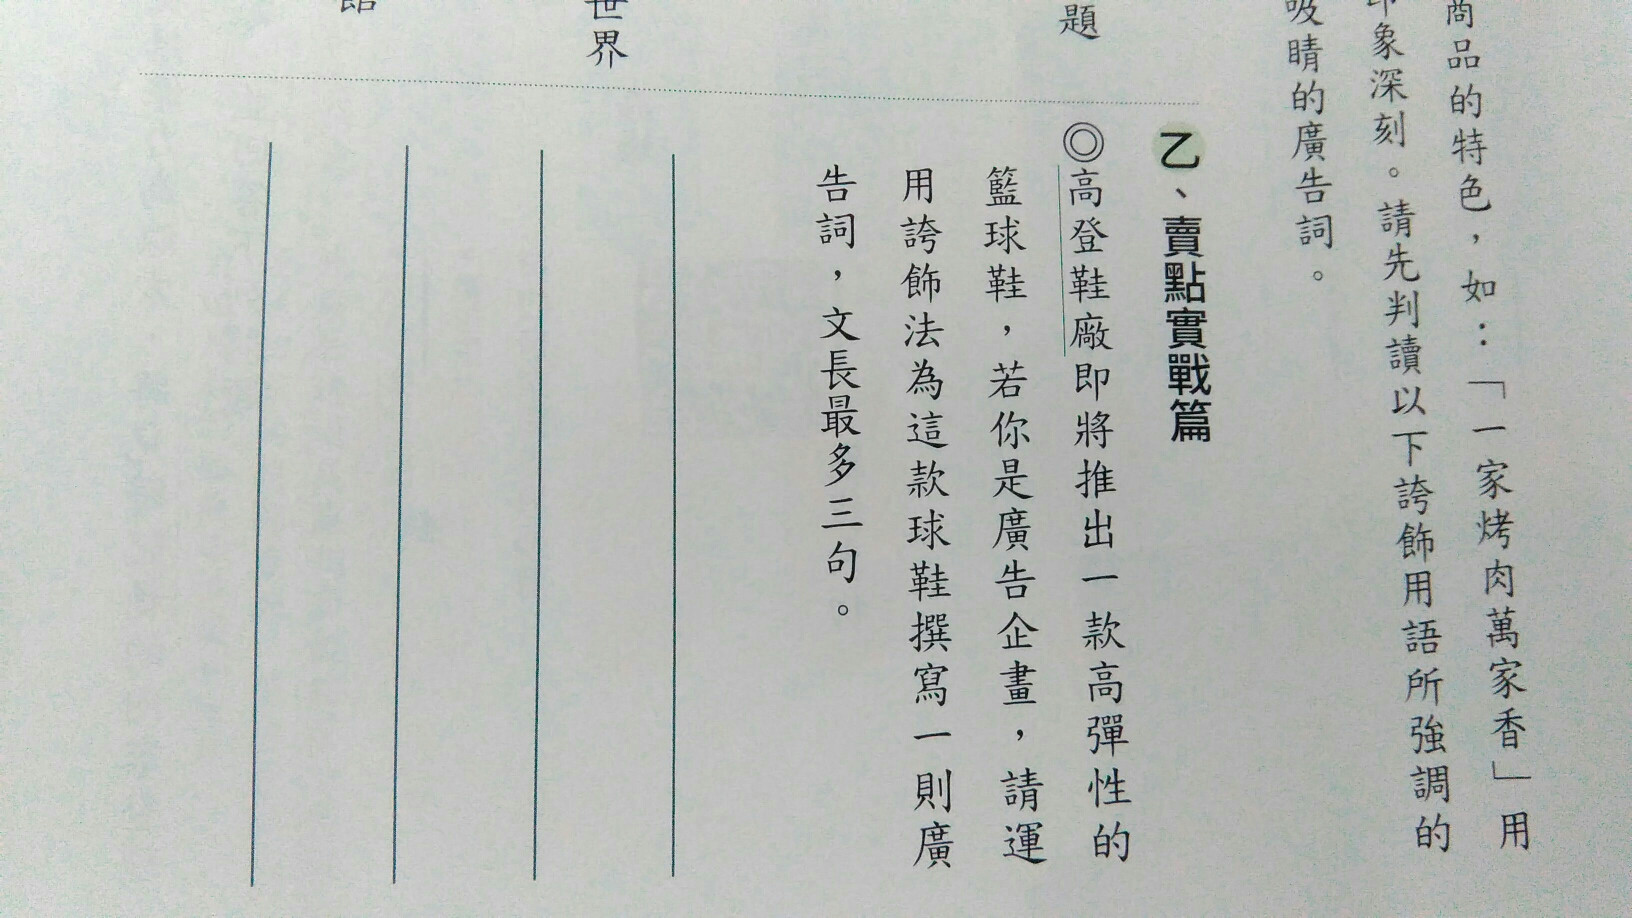 商品的特色，如：「一家烤肉萬家香」用
印象深刻。請先判讀以下誇飾用語所強調的
吸睛的廣告詞。
乙、賣點實戰篇
◎高登鞋廠即將推出一款高彈性的
籃球鞋，若你是廣告企畫，請運
用誇飾法為這款球鞋撰寫一則廣
告詞，文長最多三句。
題
世界
館